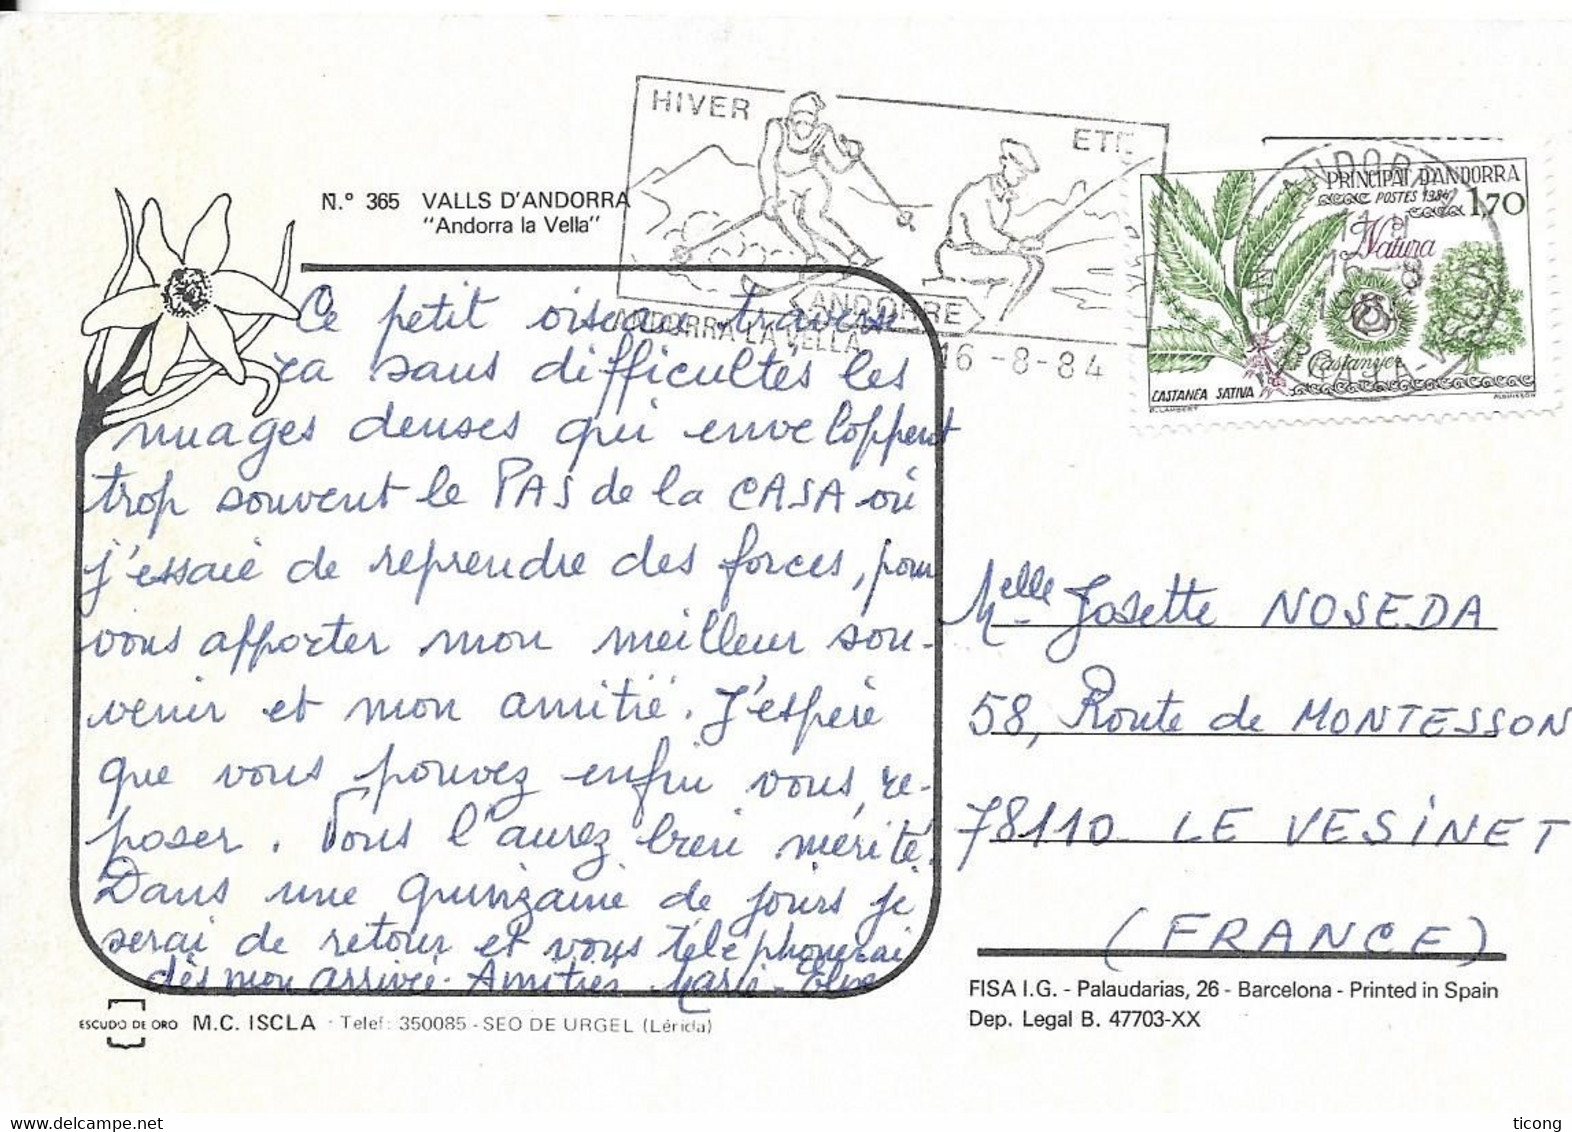 HIVER
ETE
N.º 365 VALLS D'ANDORRA
"Andorra la Vella"
ANDORRE
ANDORRA-LA-VELLA
16-8-84
PRINCIPAT D'ANDORRA
POSTES 1984
1,70
Natura
Castanyer
CASTANEA SATIVA
Ce petit oiseau traverse
ra sans difficultés les
nuages denses qui enveloppent
trop souvent le PAS de la CASA où
j'essaie de reprendre des forces, pour
vous apporter mon meilleur sou-
venir et mon amitié. J'espère
que vous pouvez enfin vous re-
poser. Vous l'aurez bien mérité.
Dans une quinzaine de jours je
serai de retour et vous téléphonerai
dès mon arrivée. Amitiés Marie-Elise
Melle Josette NOSEDA
58, Route de MONTESSON
78110 LE VESINET
(FRANCE)
ESCUDO DE ORO M.C. ISCLA · Telef: 350085 - SEO DE URGEL (Lérida)
FISA I.G. - Palaudarias, 26 - Barcelona - Printed in Spain
Dep. Legal B. 47703-XX
ticong